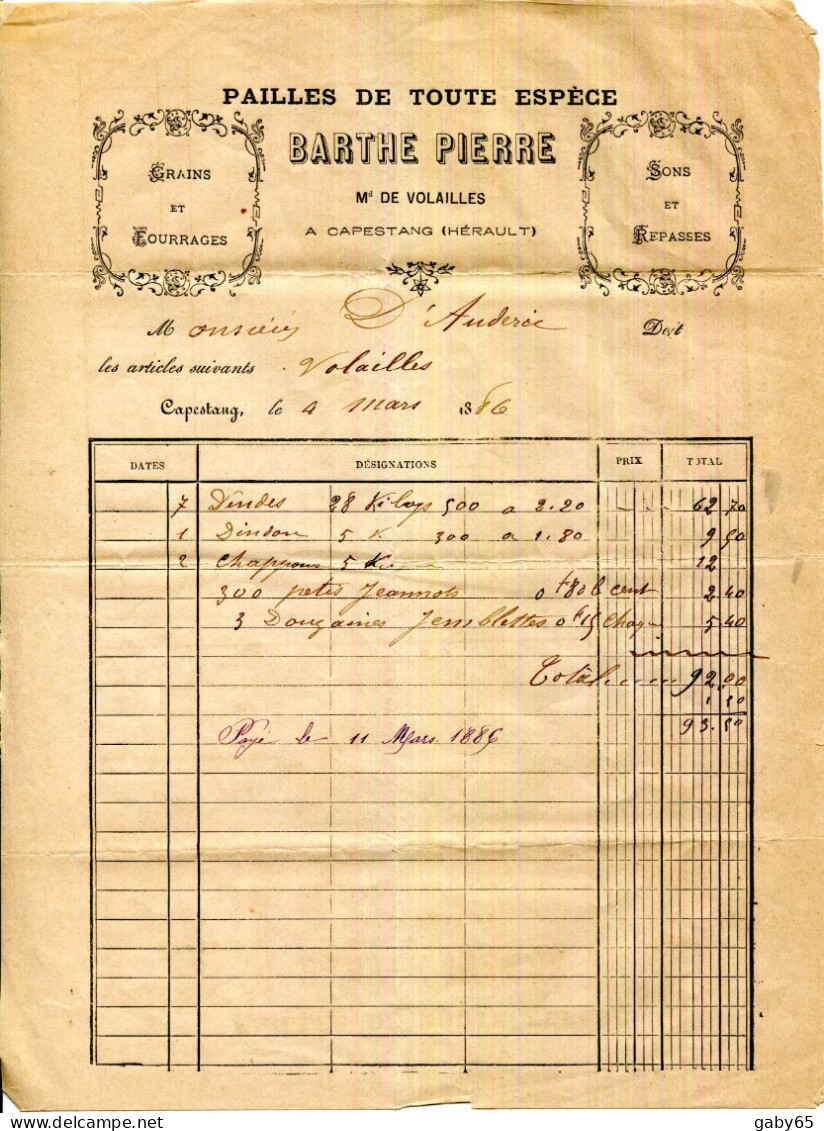 PAILLES DE TOUTE ESPÈCE
BARTHE PIERRE
Md DE VOLAILLES
A CAPESTANG (HÉRAULT)
GRAINS
ET
FOURRAGES
SONS
ET
REPASSES
Monsieur D'Auderic Doit
les articles suivants Volailles
Capestang, le 4 mars 1886
DATES DÉSIGNATIONS PRIX TOTAL
7 Dindes 28 Kilogs 500 a 2.20 62 70
1 Dindon 5 K 300 a 1.80 9 50
2 Chappons 5 Kil 12
300 petis Jeannots 0 f 80 le cent 2 40
3 Douzaines Jemblettes 0 f 15 chaq 5 40
Total 92,00
1 50
93.50
Payé le 11 Mars 1886
gaby65